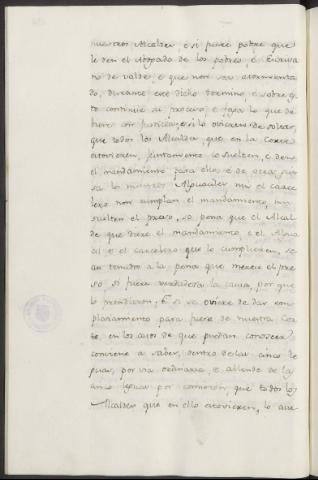 nuestros Alcaldes, e si fuere pobre que
le den el Abogado de los pobres, e Escriva
no de valde, e que non sea atormenta
do, durante este dicho termino, e sobre ef
to continúe su proceso, e faga lo que de
biere con justicia, e si lo ovieren de soltar,
que todos los Alcaldes, que en la Carcel
estovieren, juntamente lo suelten, e den
el mandamiento para ello, e de otra gui
sa los nuestros Alguaciles nin el carce
lero non cumplan el mandamiento, nin
suelten el preso, so pena que el Alcal
de que diere el mandamiento, e el Algua
cil e el carcelero que lo cumplieren, se
an tenudos a la pena que merecie el pre
so, si fuere verdadera la causa, por que
lo prendieron; e si se oviere de dar em
plazamiento para fuera de nuestra Cor
te, en los casos de que puedan conoscer,
conviene a saber, dentro de las cinco le
guas, por via ordinaria, e allende de las
cinco leguas por comision, que todos los
Alcaldes que en ello estovieren, lo ave